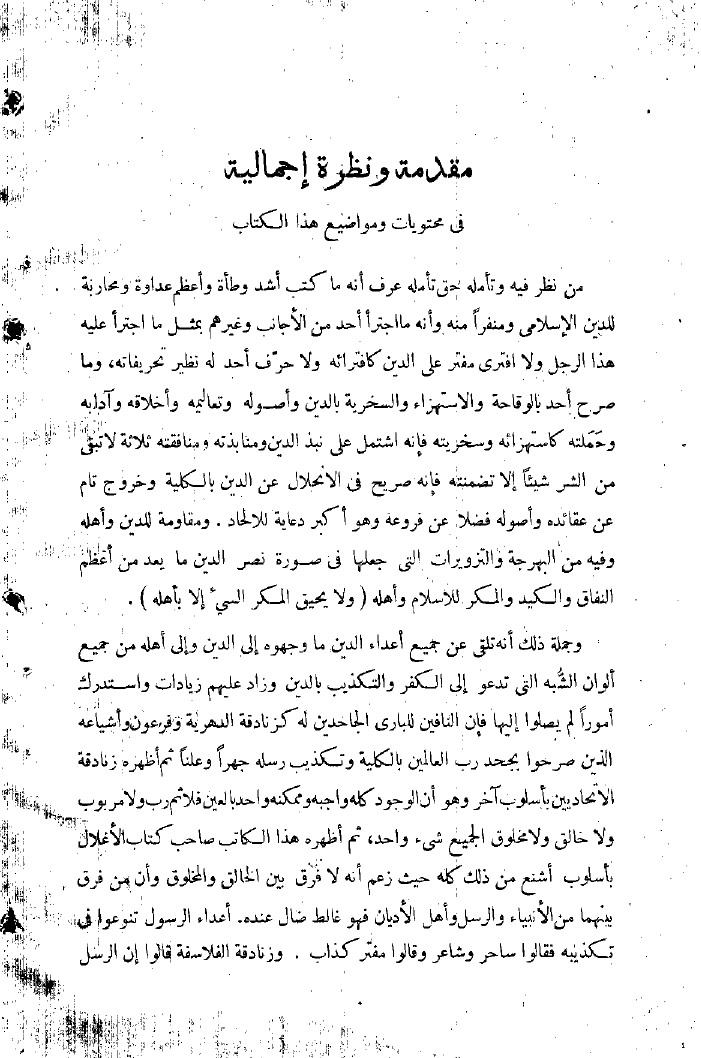 مقدمة ونظرة إجمالية
فى محتويات ومواضيع هذا الكتاب
من نظر فيه وتأمله حق تأمله عرف أنه ما كتب أشد وطأة وأعظم عداوة ومحاربة
للدين الإسلامى ومنفراً منه وأنه ما اجترأ أحد من الأجانب وغيرهم بمثل ما اجترأ عليه
هذا الرجل ولا افترى مفتر على الدين كافترائه ولا حرّف أحد له نظير تحريفاته، وما
صرح أحد بالوقاحة والاستهزاء والسخرية بالدين وأصوله وتعاليمه وأخلاقه وآدابه
وحَمَلته كاستهزائه وسخريته فإنه اشتمل على نبذ الدين ومنابذته ومنافقته ثلاثة لا تبقى
من الشر شيئاً إلا تضمنته فإنه صريح فى الانحلال عن الدين بالكلية وخروج تام
عن عقائده وأصوله فضلا عن فروعه وهو أكبر دعاية للالحاد . ومقاومة للدين وأهله
وفيه من البهرجة والتزويرات التى جعلها فى صورة نصر الدين ما يعد من أعظم
النفاق والكيد والمكر للاسلام وأهله ( ولا يحيق المكر السىء إلا بأهله ) .
وجملة ذلك أنه تلقى عن جميع أعداء الدين ما وجهوه إلى الدين وإلى أهله من جميع
ألوان الشُّبه التى تدعو إلى الكفر والتكذيب بالدين وزاد عليهم زيادات واستدرك
أموراً لم يصلوا إليها فإن النافين للبارى الجاحدين له كزنادقة الدهرية وفرعون وأشياعه
الذين صرحوا بجحد رب العالمين بالكلية وتكذيب رسله جهراً وعلناً ثم أظهره زنادقة
الاتحاديين بأسلوب آخر وهو أن الوجود كله واجبه وممكنه واحد بالعين فلا ثم رب ولا مربوب
ولا خالق ولا مخلوق الجميع شىء واحد، ثم أظهره هذا الكاتب صاحب كتاب الأغلال
بأسلوب أشنع من ذلك كله حيث زعم أنه لا فرق بين الخالق والمخلوق وأن من فرق
بينهما من الأنبياء والرسل وأهل الأديان فهو غالط ضال عنده. أعداء الرسول تنوعوا فى
تكذيبه فقالوا ساحر وشاعر وقالوا مفتر كذاب . وزنادقة الفلاسفة قالوا إن الرسل